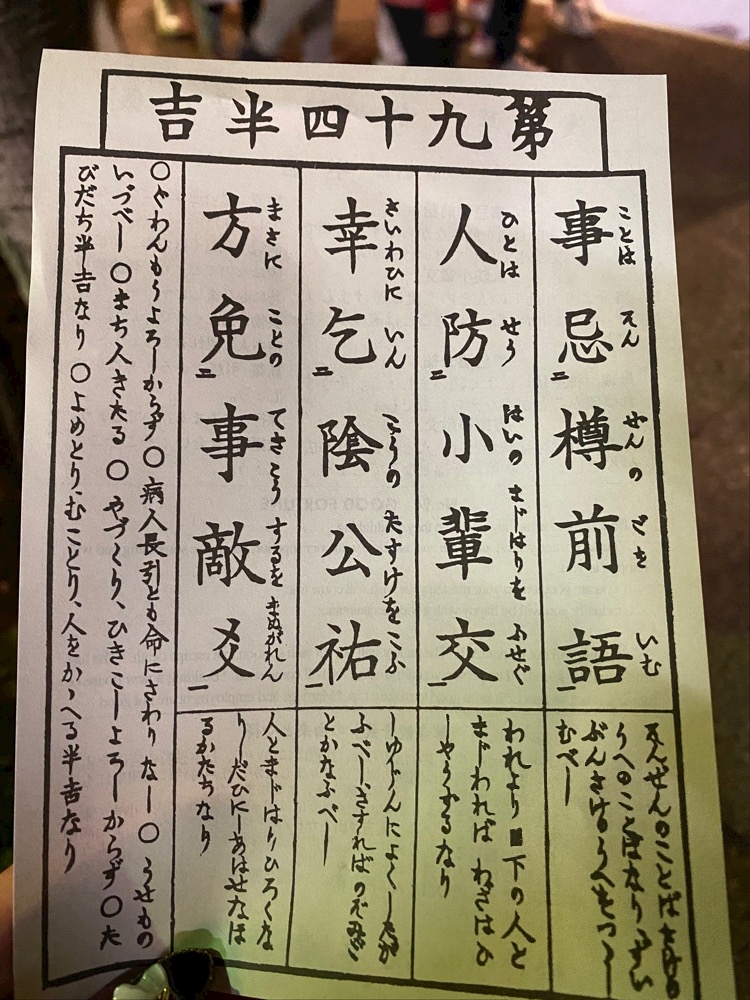 第九十四半吉
ことは そん せんの ざき いむ
事忌二樽前語一
そんぜんのことばさけの
うへのことばなりずい
ぶんさけのうへをつゝし
むべし
ひとは せう はいの まじはりを ふせぐ
人防二小輩交一
われより■下の人と
まじわればわざはひ
しやうずるなり
さいわひに いん こうの たすけを こふ
幸乞二陰公祐一
しゆじんによくしたが
ふべしさすればのぞみご
とかなふべし
まさに ことの てきこう するを まぬがれん
方免二事敵爻一
人とまじはりひろくな
りしだひにしあはせなほ
るかたちなり
○ぐわんもうよろしからず○病人長引とも命にさわりなし○うせもの
いづべし○まち人きたる○やづくり、ひきこしよろしからず○た
びだち半吉なり○よめとり、むことり、人をかゝへる半吉なり